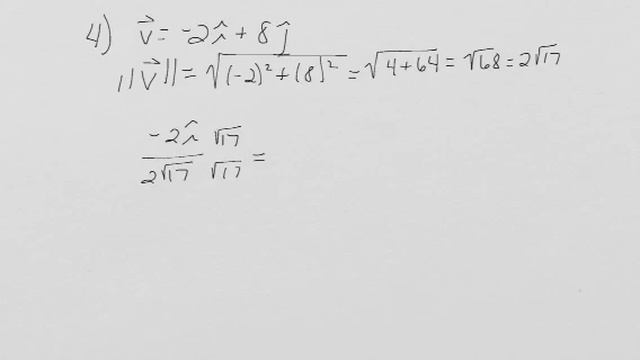 4) v⃗ = -2î + 8ĵ
||v⃗|| = √((-2)² + (8)²) = √(4+64) = √68 = 2√17
-2î √17
2√17 √17 =